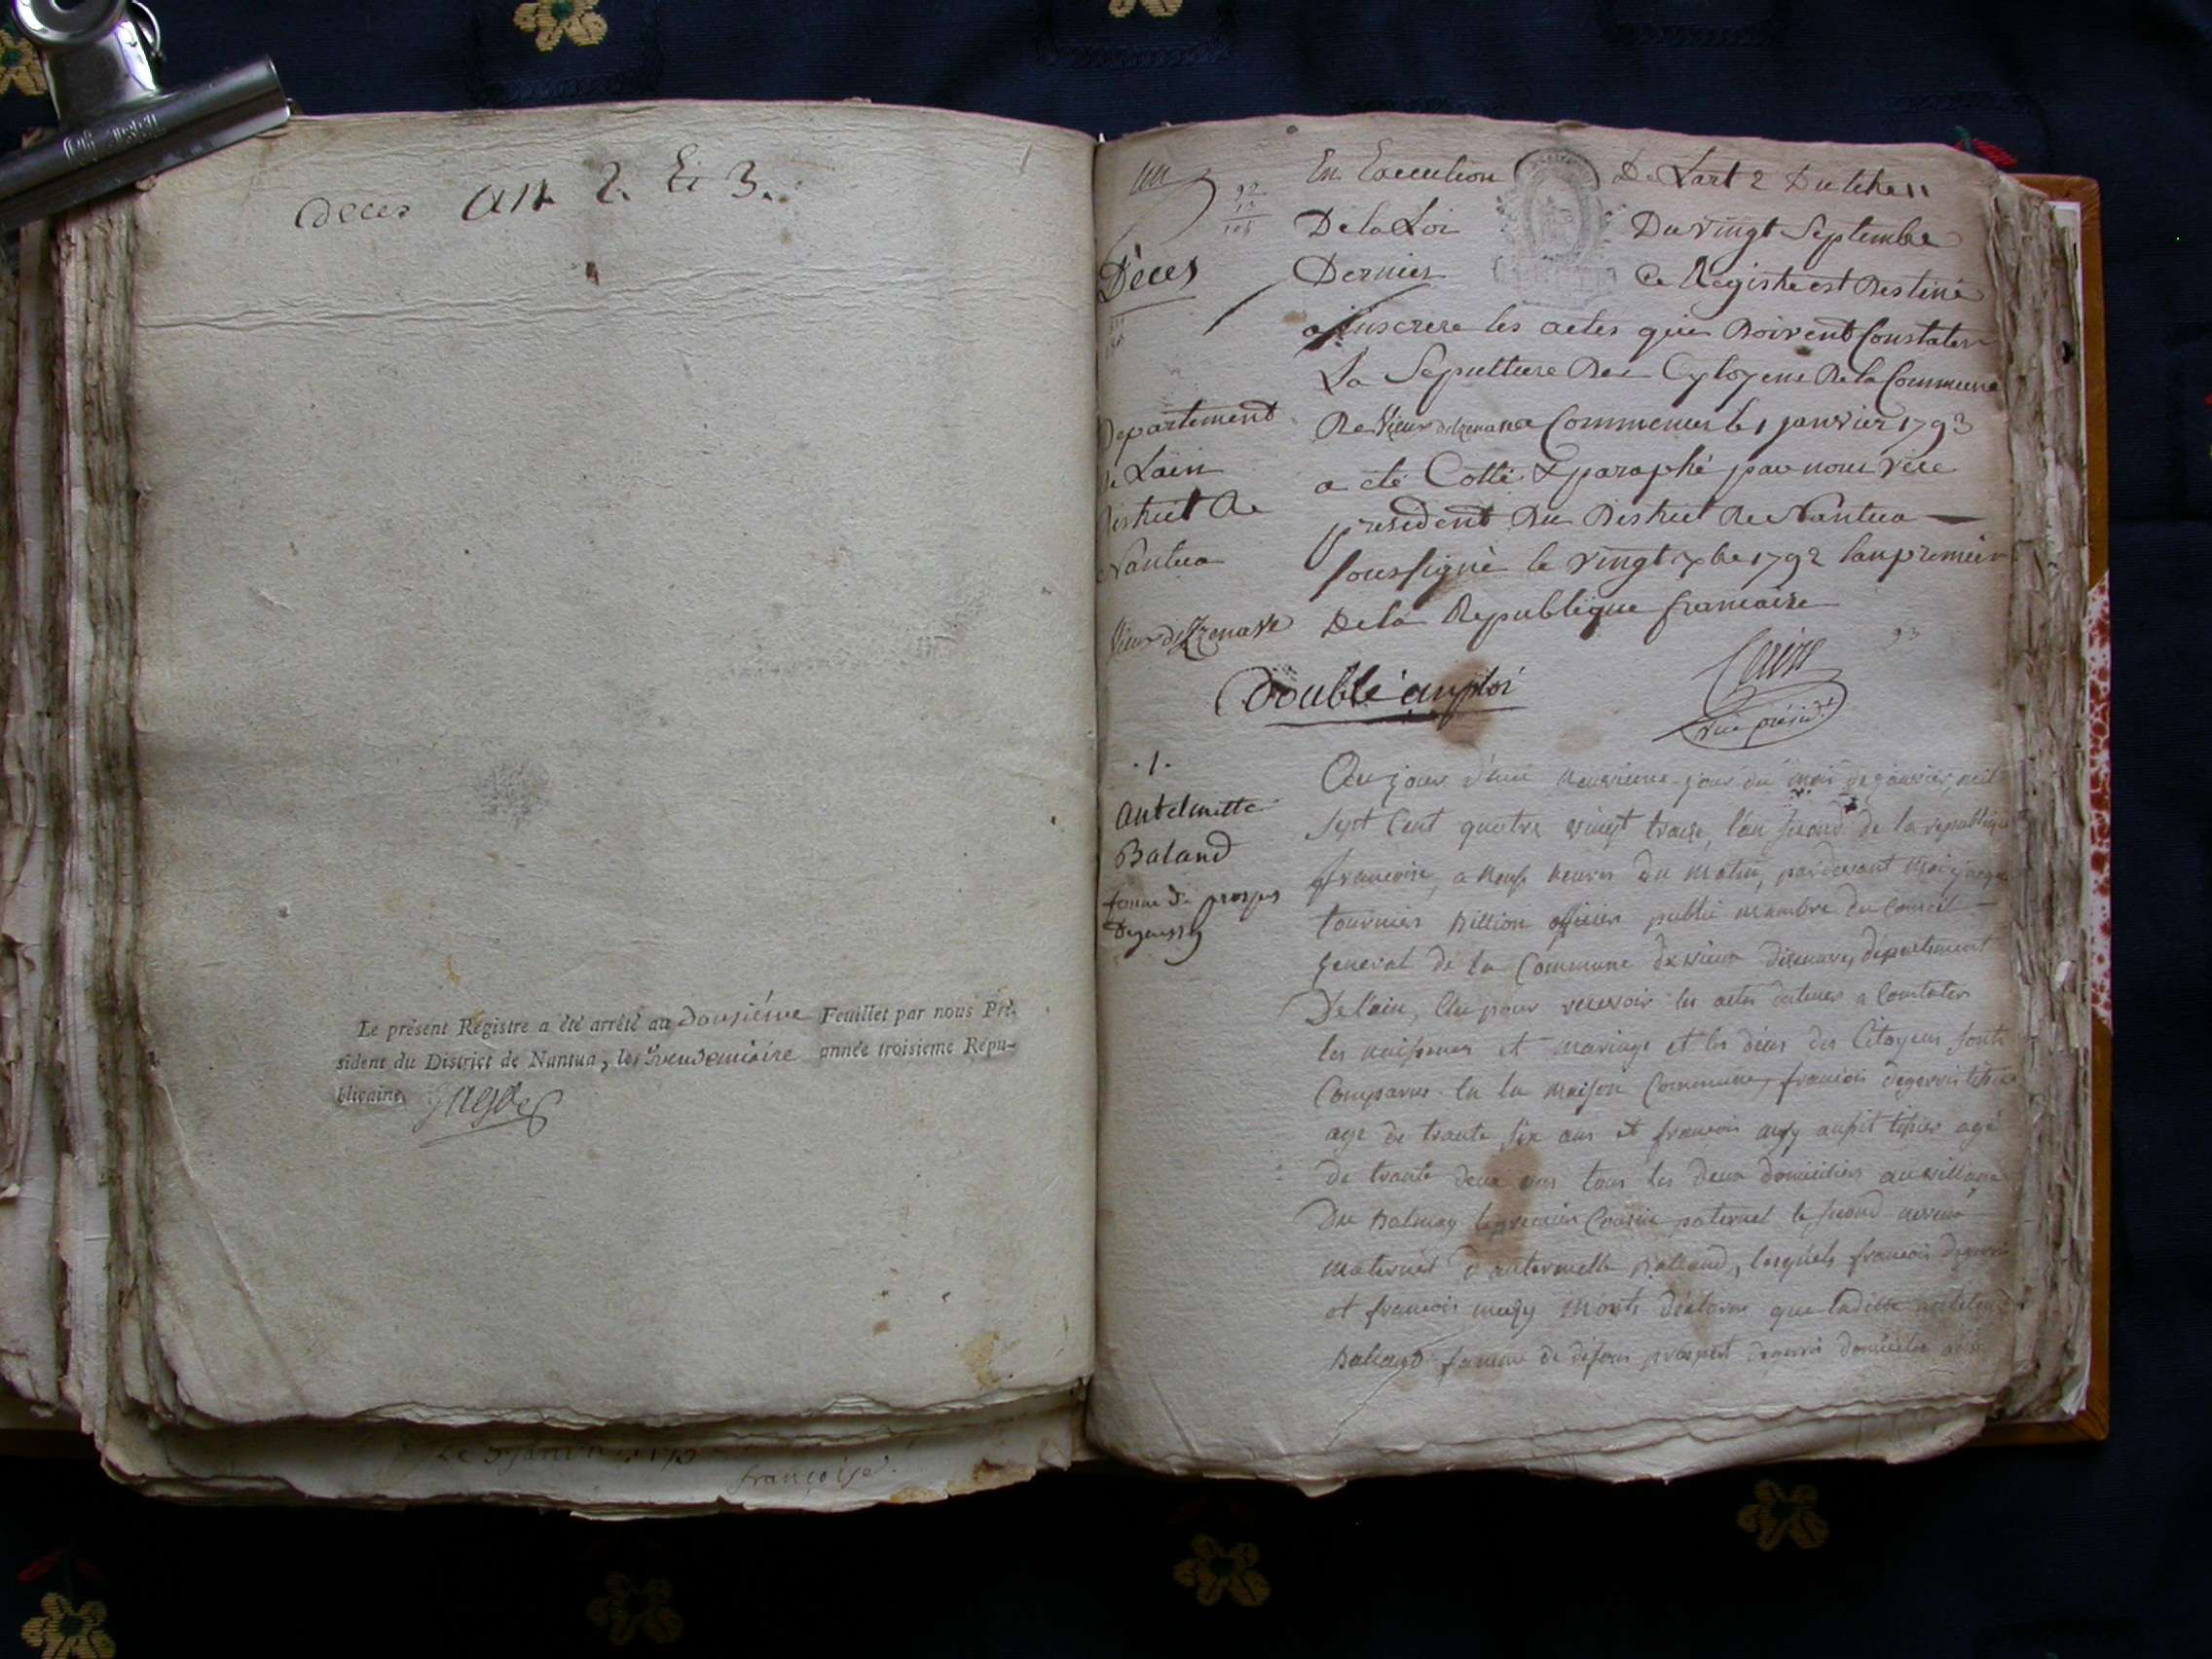 deces an 2. Et 3.
Le présent Régistre a été arrêté au douzième Feuillet par nous Pré-
sident du District de Nantua, le vendemiaire année troisieme Répu-
blicaine
Le 5 janvier
françoise
un
92
Décès
Departement
de Lain
District de
Nantua
Vieux d'Izenave
En Execution De Lart 2 Du titre 11
De la Loi Du vingt Septembre
Dernier Ce Registre est Destiné
a Inscrere les actes qui Doivent Constater
La Sepulture Des Cytoyens De la Commune
De Vieux d'Izenave a Commencer le 1 janvier 1793
a eté Cotté & paraphé par nous vice
president Du District De Nantua
soussigné le vingt xbre 1792 lan premier
De la Republique francaise
93
vice présidt
Double emploi
.1.
Antelmette
Baland
femme de prosper
Au jour d'hui neuvieme jour du mois de janvier mil
sept Cent quatre vingt traize, l'an second de la republique
francoise, a neuf heures du matin, pardevant moi
tournier Billion officier public membre du Conseil
general de la Commune de vieux disenave, departement
De lain, Elu pour recevoir les actes destines a Constater
les naissances et mariage et les décès des Citoyens sonts
Comparus en la maison Commune, francois
age de trante six ans et francois aussit age
de trante deux ans tous les deux domicilies au village
Du Balmay le premier Cousin paternel le second neveu
maternel d'antermette Balland, lesquels francois
et francois monts déclares que ladite
Balland famme de defeun prospert